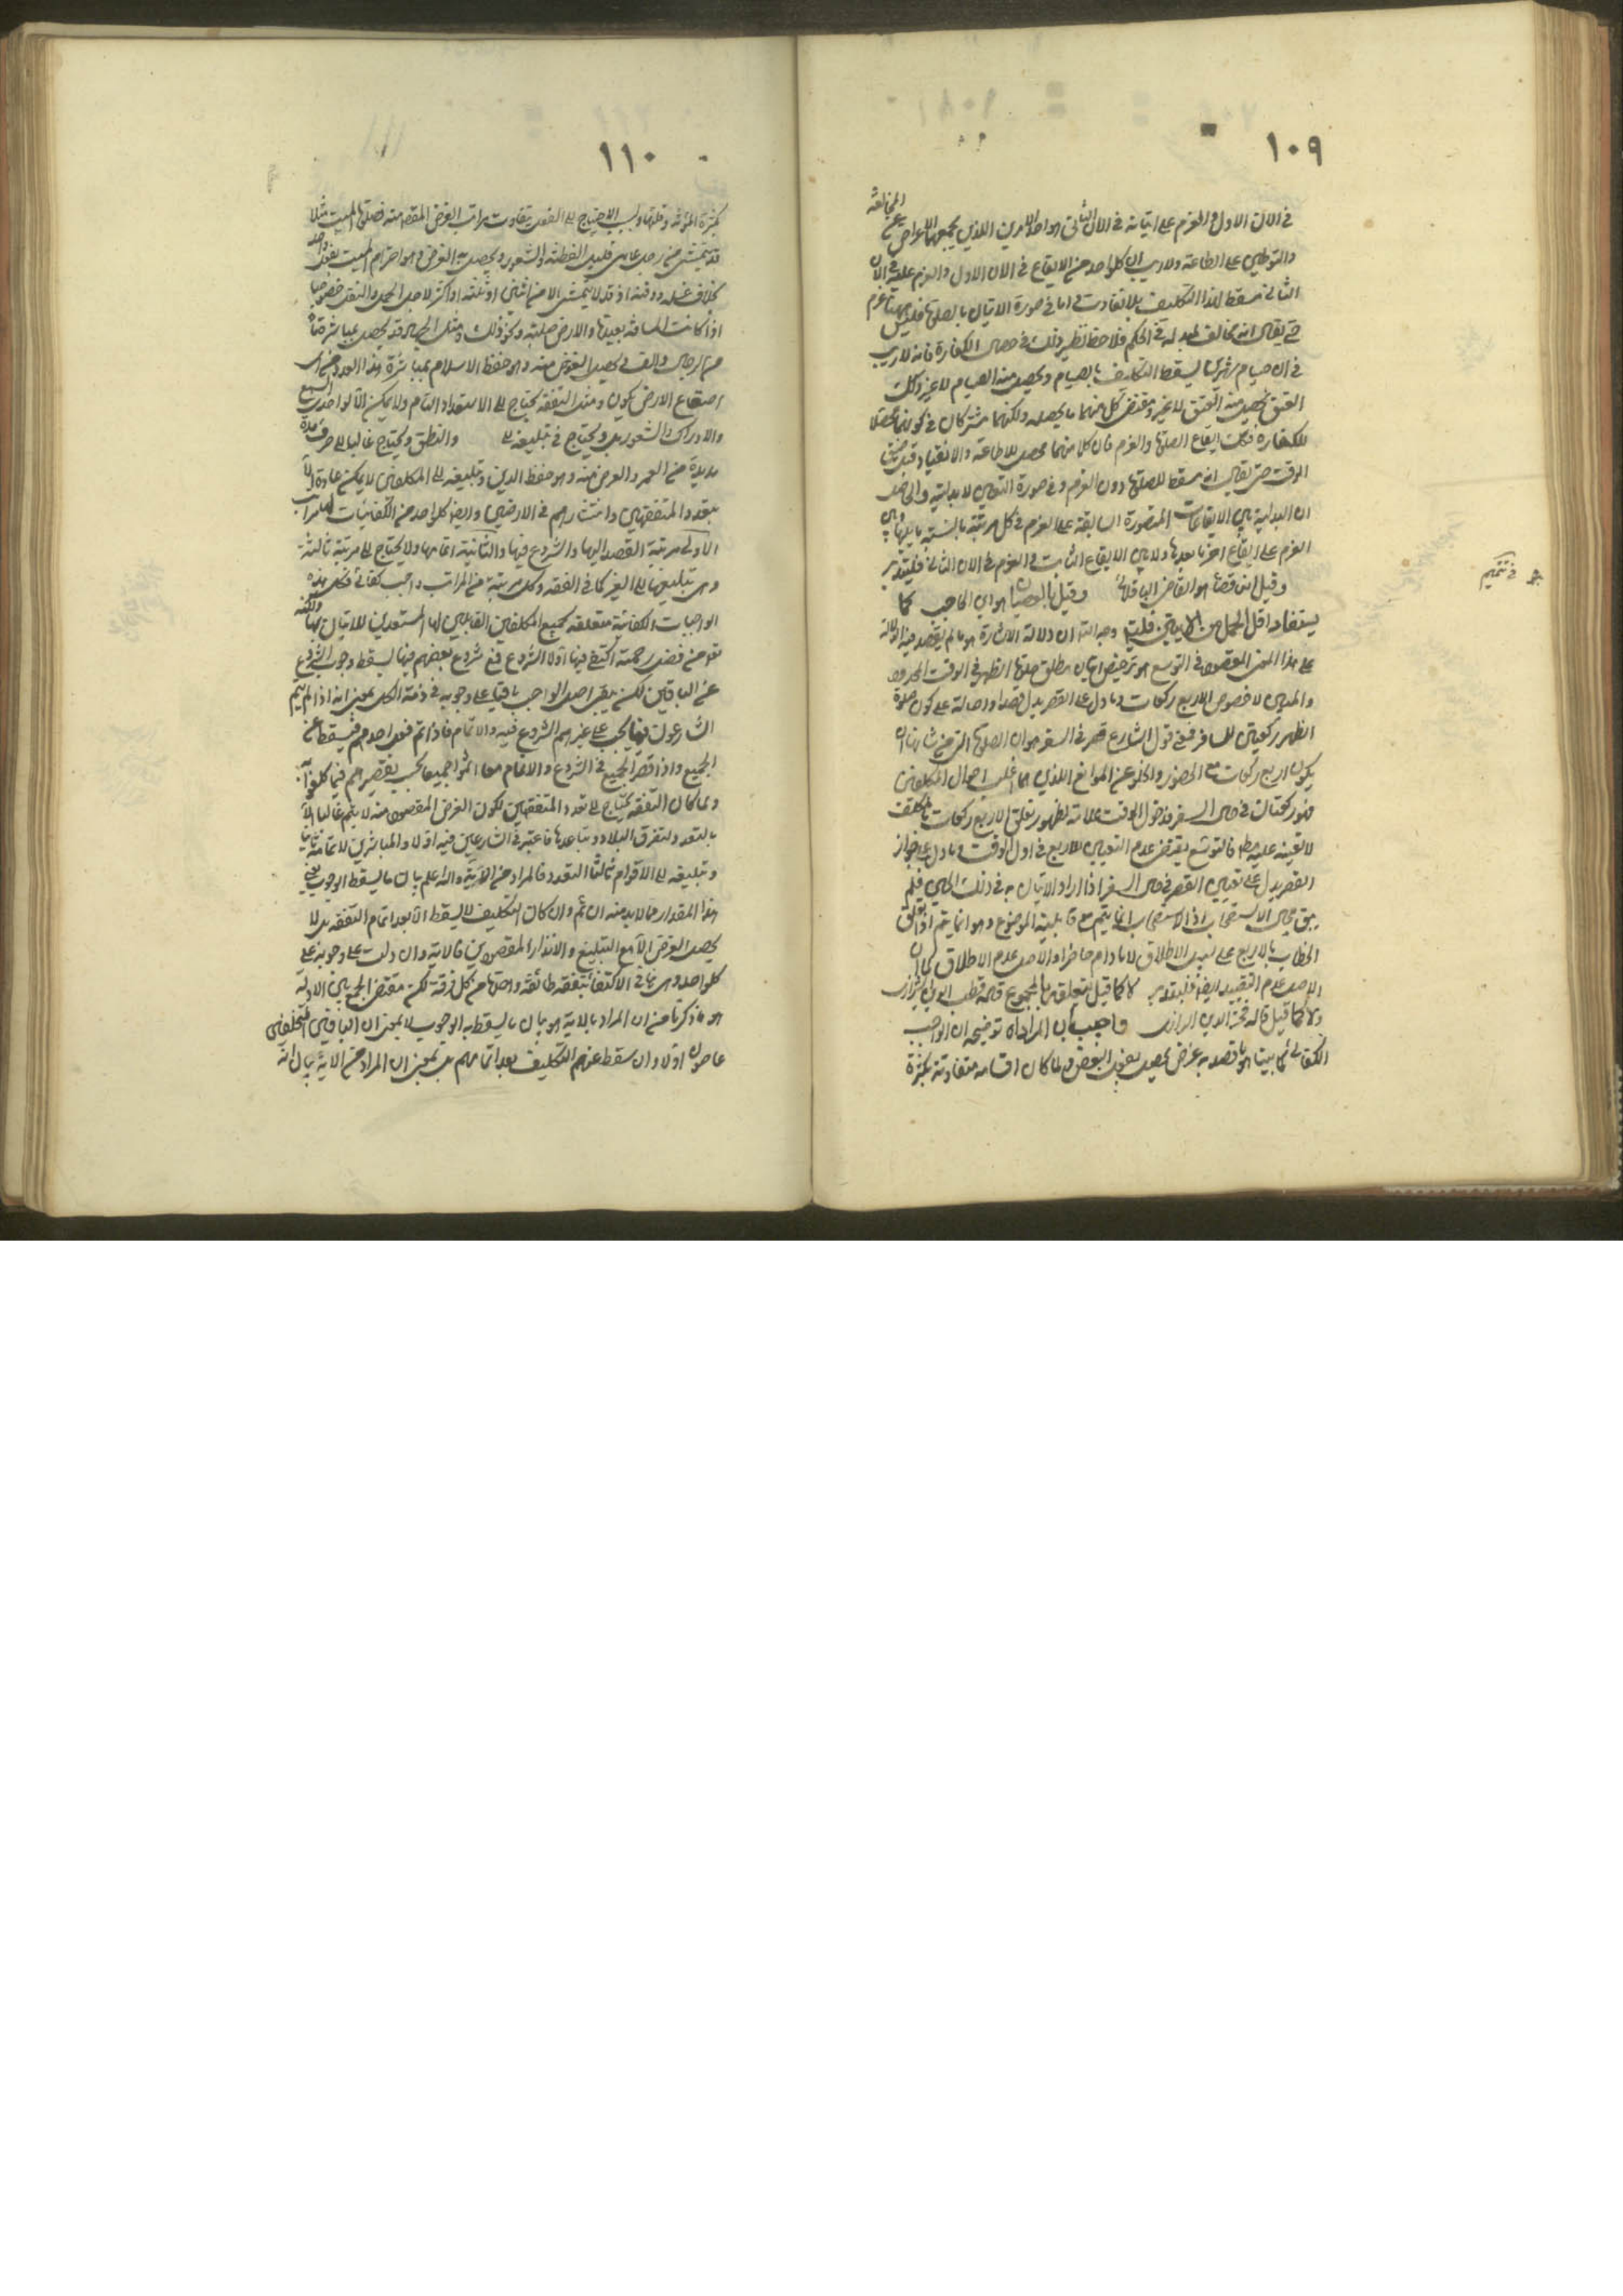 ١٠٩
المخالفة
في الان الاول والعزم على اتيانه في الان الثاني هو احد الامرين اللذين يجمعهما الاعراض عن
والتوطين على الطاعة ولا ريب ان كلواحد من الايقاع في الان الاول والعزم عليه في الان
الثاني مسقط لهذا التكليف بلا تفاوت اما في صورة الاتيان بالصلوة فليس هنا عزم
حتى يقال انه مخالف لمبدله في الحكم فلاحظ نظير ذلك في خصال الكفارة فانه لا ريب
في ان صيام شهرين يسقط التكليف بالصيام ويحصل منه الصيام لا غير وكذلك
العتق يحصل منه العتق لا غير ومقتضى كل منهما ما يحصله ولكنهما مشتركان في كونهما محصلا
للكفارة فكذلك ايقاع الصلوة والعزم فان كلا منهما محصل للاطاعة والانقياد قبل تضيق
الوقت حتى يقال انه مسقط للصلوة دون العزم وفي صورة التعيين لا بدلية والحاصل
ان البدلية بين الايقاعات المتصورة السابقة على العزم في كل مرتبة بالنسبة ما يليها وبين
العزم على ايقاع اخر ما بعدها ولا بين الايقاع الثابت في العزم في الان الثاني فليتدبر
وقيل ان قضاء هو القاضي الباقلاني وقيل بالعصيان هو ابن الحاجب كما
في تتميم
يستفاد اقل الحمل من الايتين فليت وجه الشبه ان دلالة الاشارة هو ما لم يقصد فيه الدلالة
على هذا المعنى المقصود في التوسع هو ترخيص اتيان مطلق صلوة الظهر في الوقت المحدود
والمدين لا خصوص الاربع ركعات وما دل على القصر يدل قصدا واصالة على كون صلوة
الظهر ركعتين للمسافر فمعنى قول الشارع قصر في السفر هو ان الصلوة التي من شانها ان
يكون اربع ركعات مع الحضور والخلو عن الموانع اللذين هما اغلب احوال المكلفين
فهو ركعتان في حال السفر فدخول الوقت علامة لظهور تعلق الاربع ركعات بالمكلف
لا تعينه عليه مط فالتوسع يقتضي عدم التعيين للاربع في اول الوقت وما دل على جواز
القصر يدل على تعيين القصر في حال السفر اذا اراد الاتيان به في ذلك الحين فلم
يبق مجال الاستصحاب اذ الاستصحاب انما يتم مع قابلية الموضوع وهو انما يتم اذا تعلق
الخطاب بالاربع على سبيل الاطلاق لا مادام حاضرا والاصل عدم الاطلاق كما ان
الاصل عدم التقييد ايضا فليتدبر لا كما قيل بتعلقه بالمجموع قاله قطب الدين الشيرازي
ولا كما قيل قاله فخر الدين الرازي واجيب بان المراد اه توضيحه ان الواجب
الكفائي كما بينا هو ما قصد به غرض يحصل بفعل البعض ولما كان اقسامه متفاوتة بكثرة
١١٠
بكثرة المؤنة وقلتها وبسبب الاحتياج الى الفعل يتفاوت مراتب الغرض المقصود منه فصلوة الميت مثلا
قد يتمشى من رجل عامي قليل الفطنة والشعور ويحصل به الغرض وهو احترام الميت بفعل واحد
بخلاف غسله ودفنه اذ قد لا يتمشى الا من اثنين او ثلثة او اكثر لاجل الحمل والنقل خصوصا
اذا كانت المسافة بعيدة والارض صلبة ونحو ذلك ومثل الجهاد قد يحصل بمباشرة مأة
من الرجال والف في تحصيل الغرض منه وهو حفظ الاسلام بمباشرة هذا العدد من اي
اصقاع الارض يكون ومثل التفقه يحتاج الى الاستعداد التام ولا يمكن الا لواحد السمع
والادراك والشعور بل ويحتاج في تبليغه الى والنطق ويحتاج غالبا الى صرف مدة
مديدة من العمر والغرض منه وهو حفظ الدين وتبليغه الى المكلفين لا يمكن عادة الا
بتعدد المتفقهين وانتشارهم في الارضين وايضا كلواحد من الكفائيات لها مراتب
الاولى مرتبة القصد اليها والشروع فيها والثانية اتمامها ولا يحتاج الى مرتبة ثالثة
وهي تبليغها الى الغير كما في الفقه وكل مرتبة من المراتب واجب كفائي فكل هذه
الواجبات الكفائية متعلقة بجميع المكلفين القابلين لها المستعدين للاتيان بها ولكنه
تعم من فضل رحمته اكتفى فيها اولا الشروع فمع شروع بعضهم فيها يسقط وجوب الشروع
عن الباقين لكن يبقى اصل الواجب باقيا على وجوبه في ذمة الكل بمعنى انه اذا لم يتم
الشارعون فيها يجب على غيرهم الشروع فيه والاتمام فاذا تم فعل احدهم فيسقط عن
الجميع واذا قصر الجميع في الشروع والاتمام معا اثموا جميعا بحسب تقصيرهم فيما كلفوا به
ولما كان التفقه يحتاج الى تعدد المتفقهين لكون الغرض المقصود منه لا يتم غالبا الا
بالتعدد ولتفرق البلاد وتباعدها فاعتبر في الشارعين فيه اولا والمباشرين لاتمامه ثانيا
وتبليغه الى الاقوام ثالثا التعدد فالمراد من الاية والله اعلم بيان ما يسقط الوجوب يعني
هذا المقدار مما لا بد منه ان تم وان كان التكليف لا يسقط الا بعد اتمام التفقه بل لا
يحصل الغرض الا مع التبليغ والانذار المقصودين فالاية وان دلت على وجوبه على
كلواحد وهي ينافي الاكتفاء بتفقه طائفة واحدة من كل فرقة لكن مقتضى الجمع بين الادلة
هو ما ذكرنا من ان المراد بالاية هو بيان ما يسقط به الوجوب لا بمعنى ان الباقين المتخلفين
عاصون اولا وان سقط عنهم التكليف بعد اتمامهم بل بمعنى ان المراد من الاية بيان انه